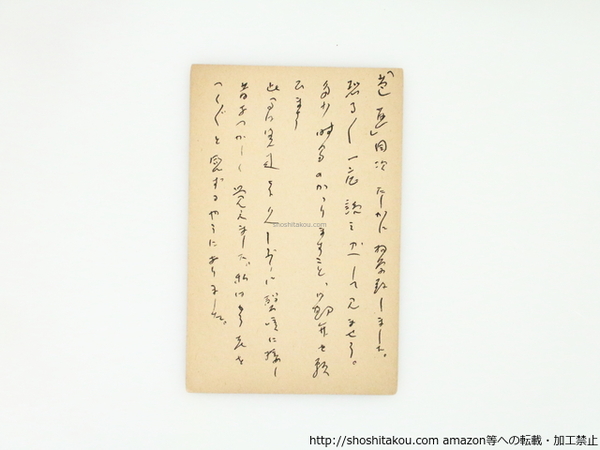 目次 たしかに 拝受致しました。
一応 読み 返して 見ませう。
多少 時日のかゝりますこと、御勘弁を願
ひます
此間 を久しぶりに に接し
昔なつかしく 覚えました。私はもう 老を
つくづくと 感ずるやうになりました。
shoshitakou.com
http://shoshitakou.com amazon等への転載・加工禁止